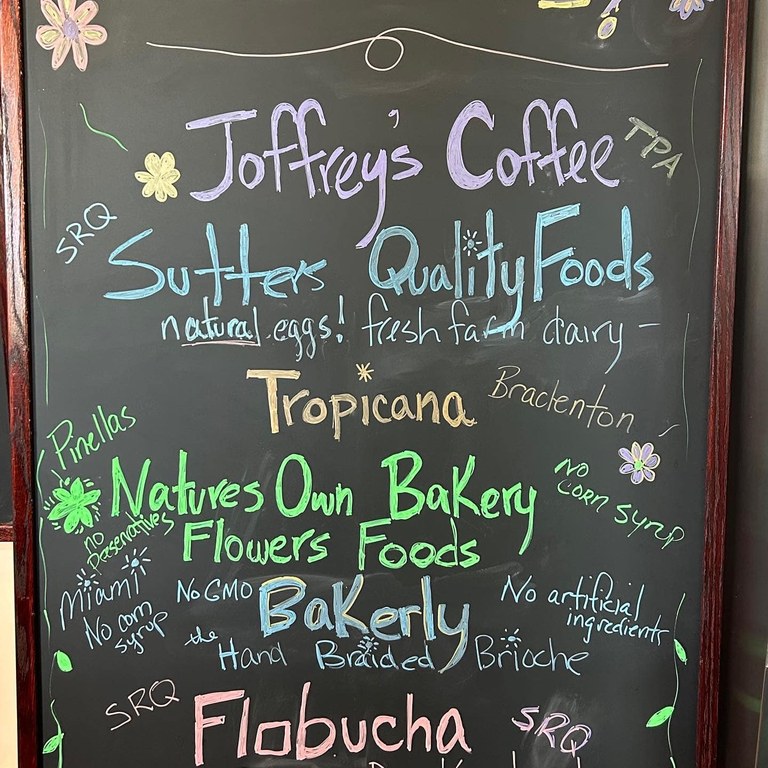 Joffrey's Coffee
TPA
SRQ
Sutters Quality Foods
natural eggs! fresh farm dairy -
Tropicana
Bradenton
Pinellas
Natures Own Bakery
No corn syrup
no preservatives
Flowers Foods
Miami
No corn syrup
No GMO
Bakerly
No artificial ingredients
the Hand Braided Brioche
SRQ
Flobucha
SRQ